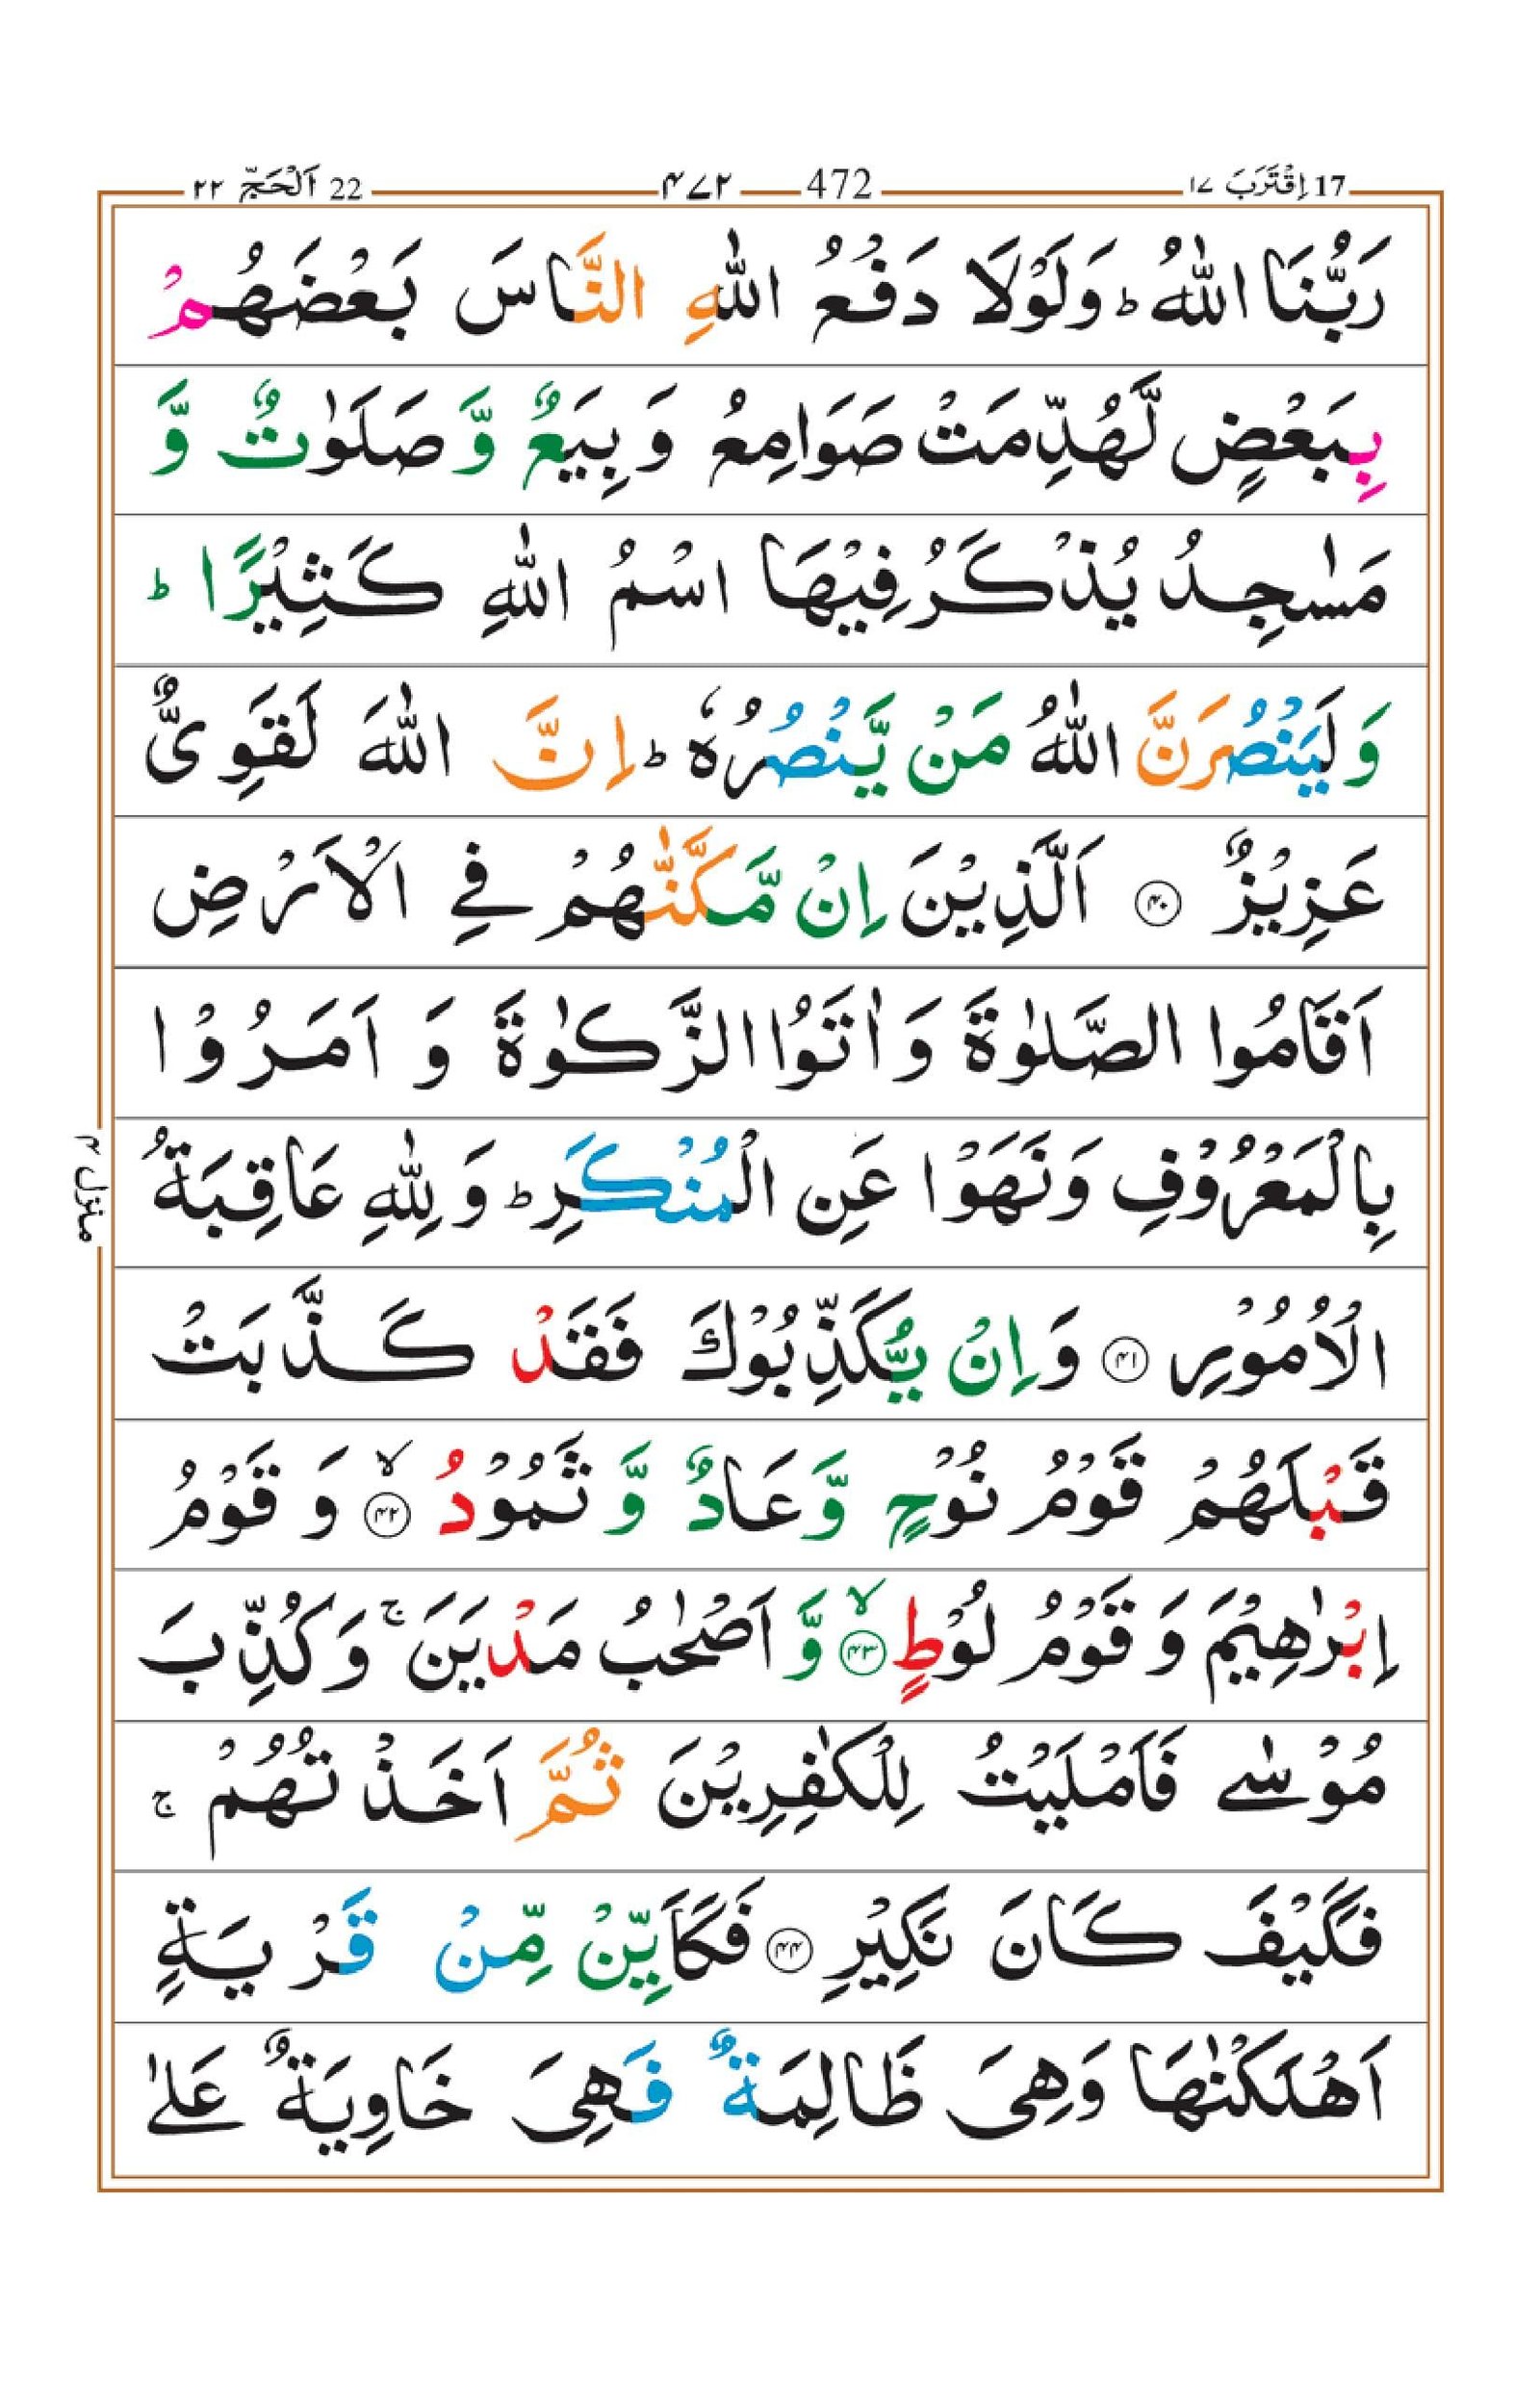 17 اِقْتَرَبَ ۱۷ 472 ۴۷۲ 22 اَلْحَجّ ۲۲
رَبُّنَا اللّٰهُ ؕ وَلَوْلَا دَفْعُ اللّٰهِ النَّاسَ بَعْضَهُمْ
بِبَعْضٍ لَّهُدِّمَتْ صَوَامِعُ وَ بِيَعٌ وَّ صَلَوٰتٌ وَّ
مَسٰجِدُ يُذْكَرُ فِيْهَا اسْمُ اللّٰهِ كَثِيْرًا ؕ
وَ لَيَنْصُرَنَّ اللّٰهُ مَنْ يَّنْصُرُهٗ ؕ اِنَّ اللّٰهَ لَقَوِيٌّ
عَزِيْزٌ ۴۰ اَلَّذِيْنَ اِنْ مَّكَّنّٰهُمْ فِي الْاَرْضِ
اَقَامُوا الصَّلٰوةَ وَ اٰتَوُا الزَّكٰوةَ وَ اَمَرُوْا
بِالْمَعْرُوْفِ وَ نَهَوْا عَنِ الْمُنْكَرِ ؕ وَ لِلّٰهِ عَاقِبَةُ
الْاُمُوْرِ ۴۱ وَ اِنْ يُّكَذِّبُوْكَ فَقَدْ كَذَّبَتْ
قَبْلَهُمْ قَوْمُ نُوْحٍ وَّ عَادٌ وَّ ثَمُوْدُ ۙ ۴۲ وَ قَوْمُ
اِبْرٰهِيْمَ وَ قَوْمُ لُوْطٍ ۙ ۴۳ وَّ اَصْحٰبُ مَدْيَنَ ۚ وَ كُذِّبَ
مُوْسٰى فَاَمْلَيْتُ لِلْكٰفِرِيْنَ ثُمَّ اَخَذْتُهُمْ ۚ
فَكَيْفَ كَانَ نَكِيْرِ ۴۴ فَكَاَيِّنْ مِّنْ قَرْيَةٍ
اَهْلَكْنٰهَا وَهِيَ ظَالِمَةٌ فَهِيَ خَاوِيَةٌ عَلٰى
منزل ۴